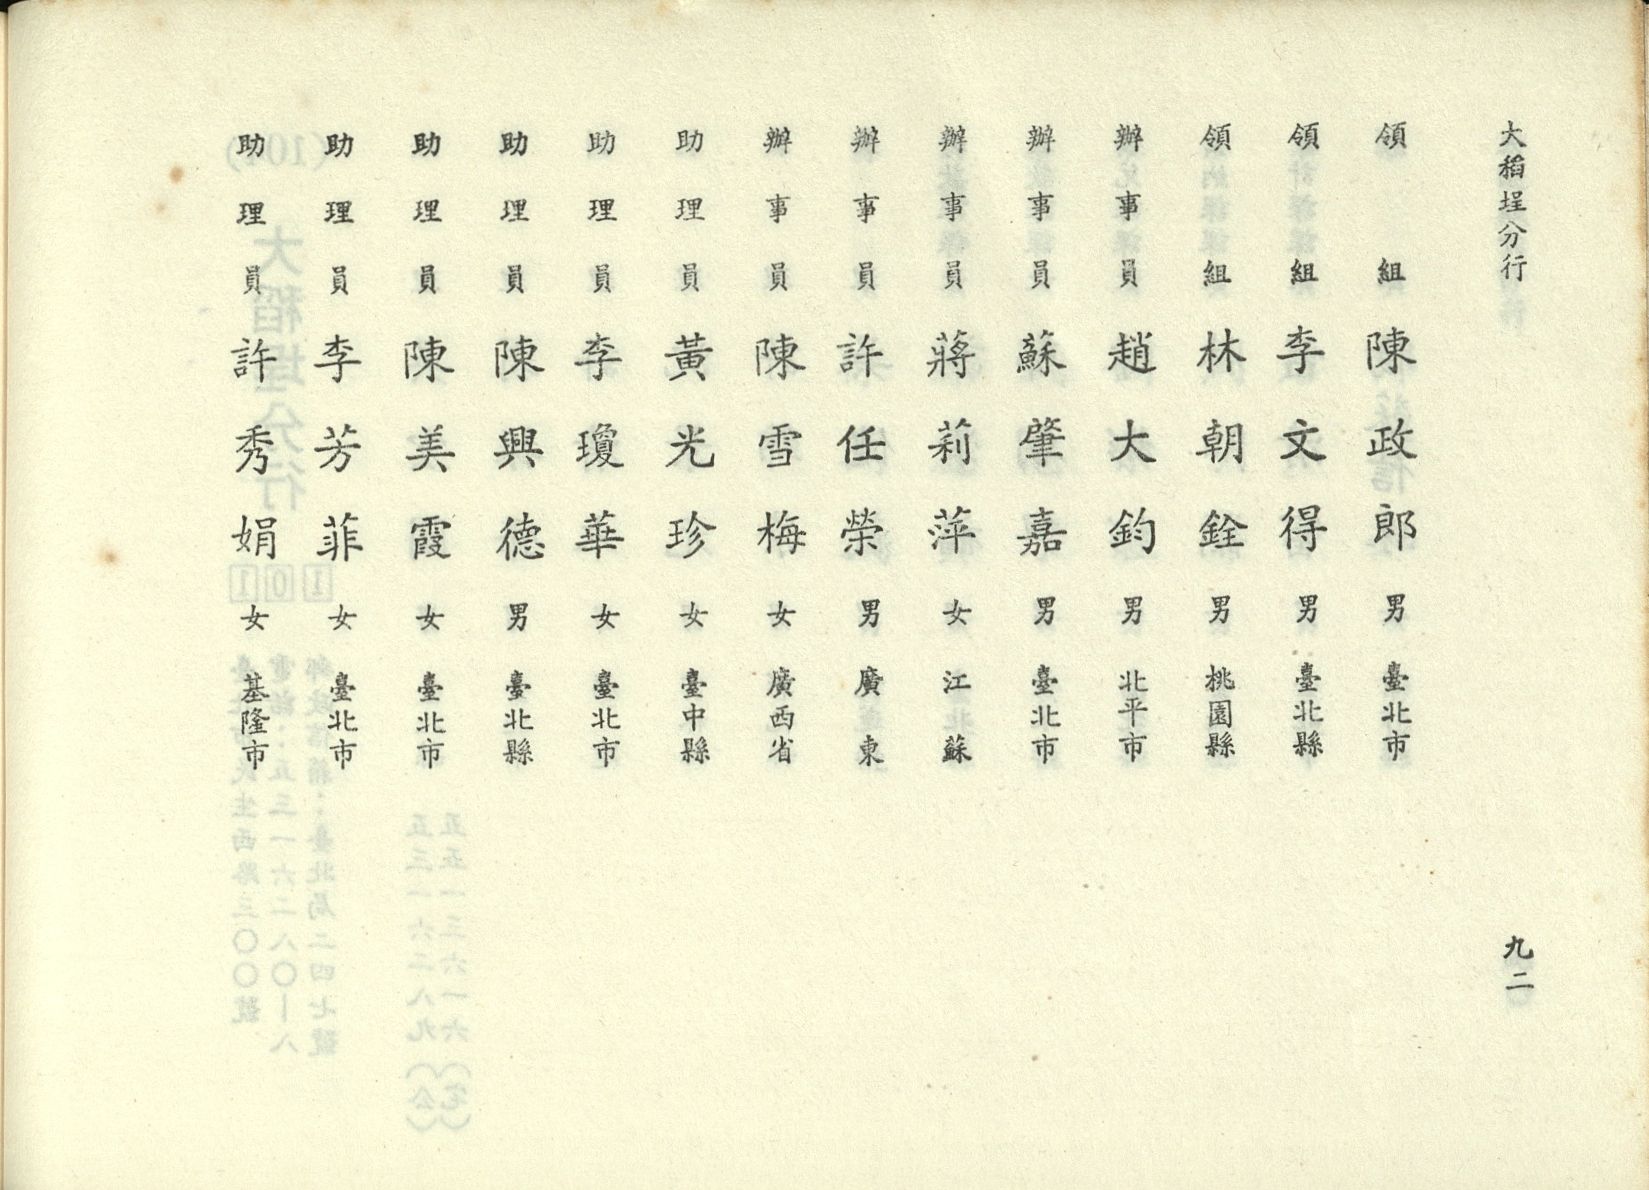 大稻埕分行
九二
領組 陳政郎 男 臺北市
領組 李文得 男 臺北縣
領組 林朝銓 男 桃園縣
辦事員 趙大鈞 男 北平市
辦事員 蘇肇嘉 男 臺北市
辦事員 蔣莉萍 女 江蘇
辦事員 許任榮 男 廣東
辦事員 陳雪梅 女 廣西省
助理員 黃光珍 女 臺中縣
助理員 李瓊華 女 臺北市
助理員 陳興德 男 臺北縣
助理員 陳美霞 女 臺北市
助理員 李芳菲 女 臺北市
助理員 許秀娟 女 基隆市